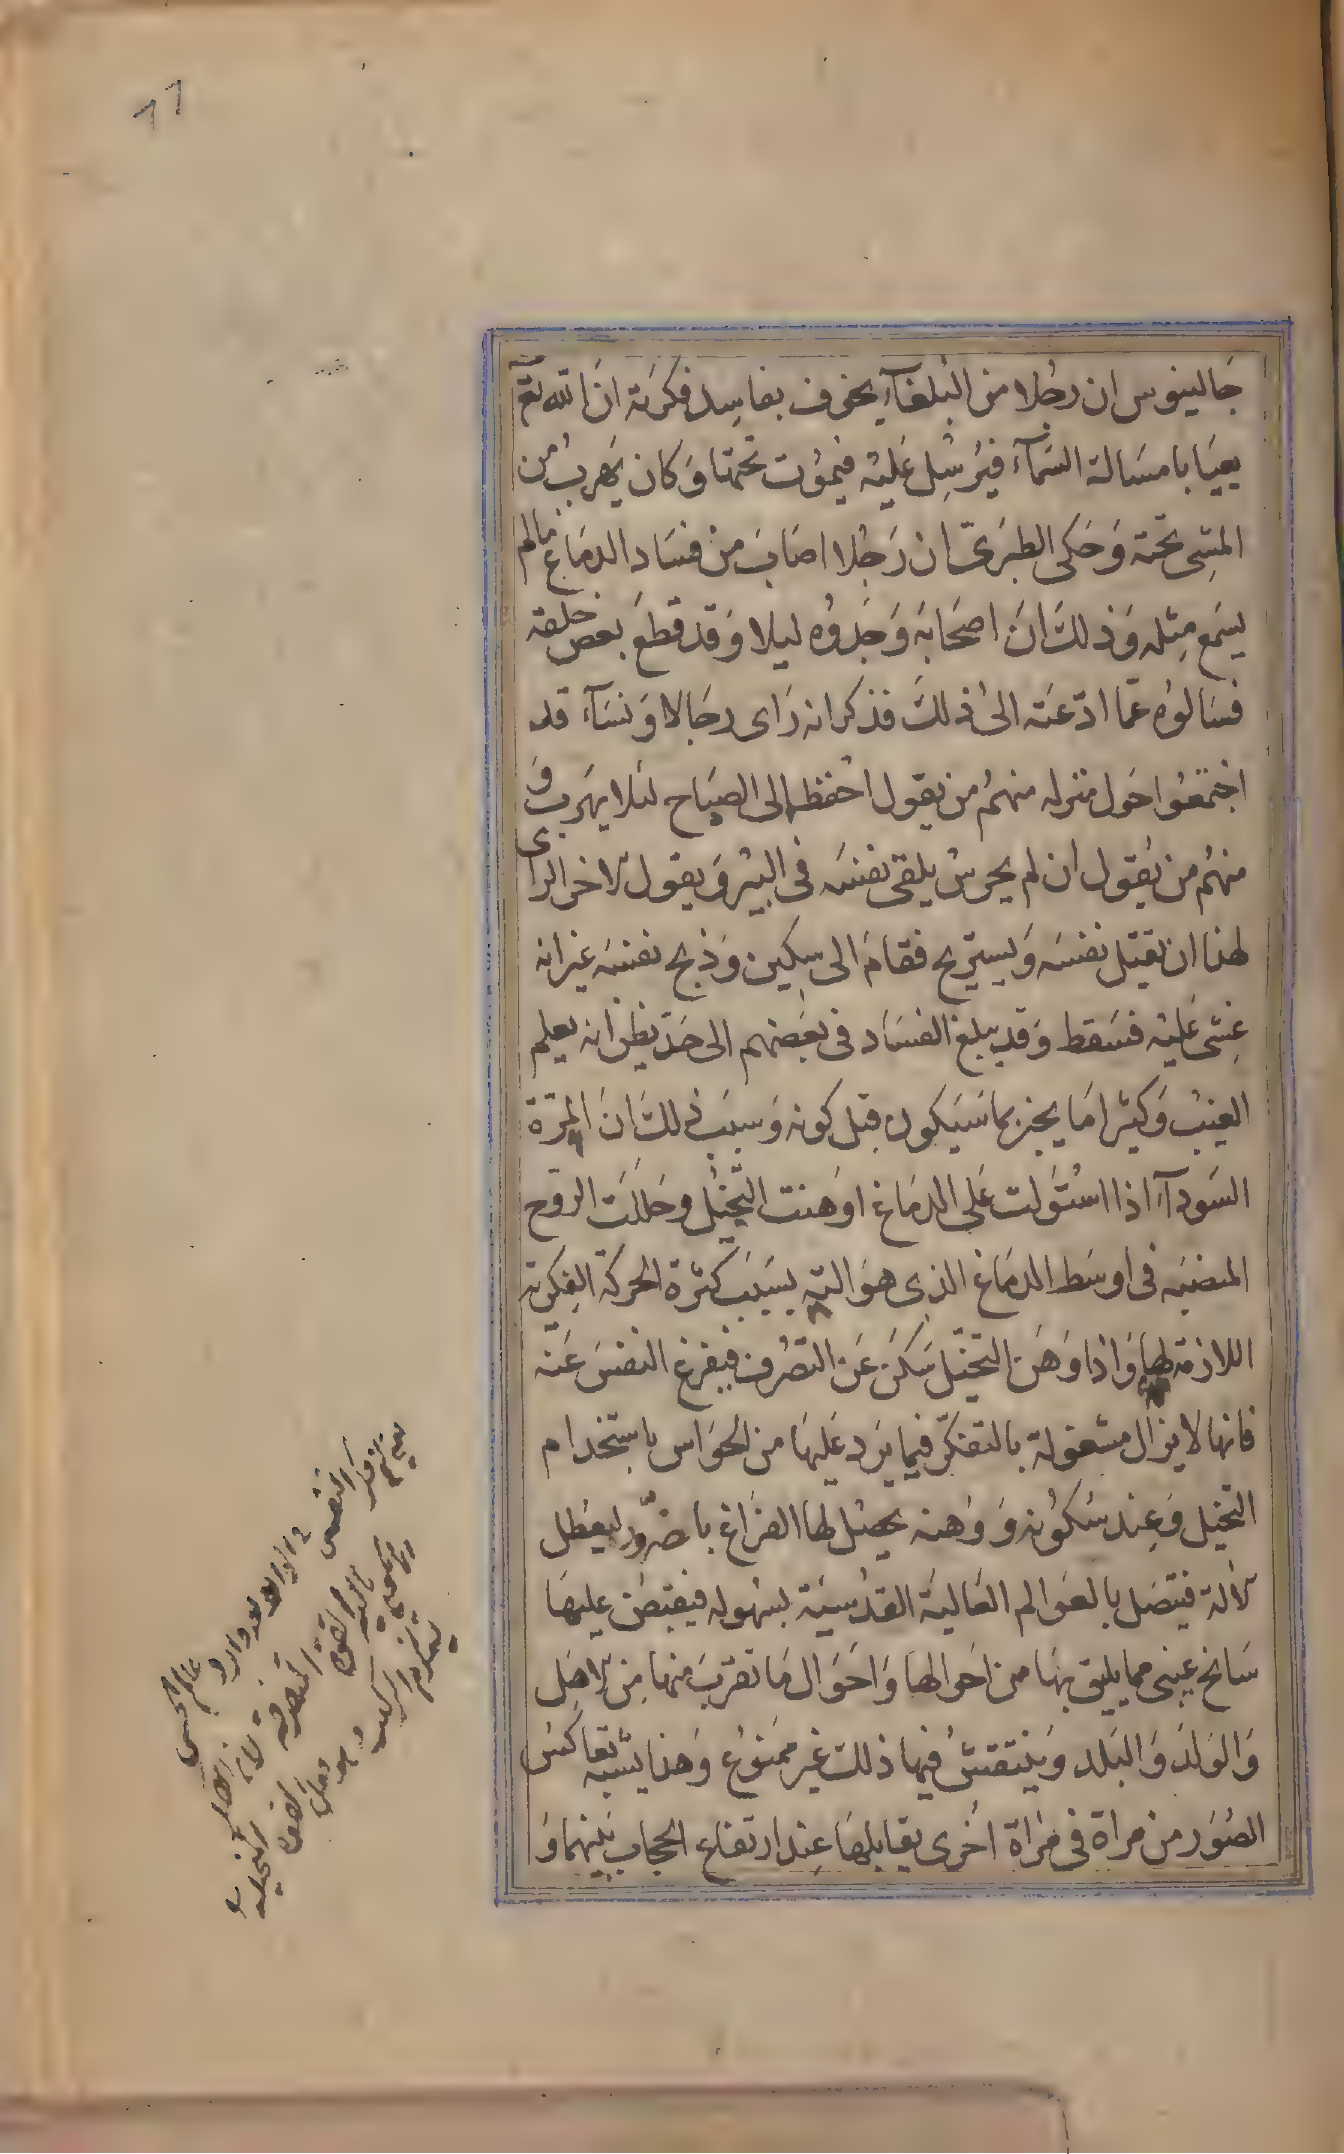 جَالينوس ان رجُلا من البُلغآءِ يخوف بفاسِد فكرته انَّ الله تع
يعيَا بامسَالة السَّمآءِ فيُرسِل عَليْه فيمُوت تحتها وَكان يَهربُ من
المشِى تحته وَحَكى الطبَرىّ ان رَجُلا اصَابَ من فسَاد الدمَاغ مالم
يسَمع مِثله وَذلكَ انَّ اصحَابَه وَجَدوُه ليلا وَقد قطعَ بعض حلقه
فسَالوُه عمّا ادّعَته الىٰ ذلكَ فذكر انه رَاى رجَالا وَنسَآءً قد
اجتمعُوا حَول منزله منهمُ من يقول احفظه الى الصبَاح لئلا يهَربَ وَ
منهُم من يُقول ان لم يحرسُ يلقى نفسَه فى البئر وَيقول الاخر الراى
لهذا ان يقتل نفسَه وَيستريح فقامَ الى سِكين وَذبح نفسَه غير انه
غِشى عَليْه فسَقط وَقد يبلغ الفسَاد فى بعَضهم الى حَدّ يظن انه يعلم
الغيبُ وَكثيرا مَا يخبر بما سَيَكون قبل كونه وَسببَ ذلكَ انَّ المرّة
السَودآءَ اذا استوَلت عَلى الدمَاغ اوَهنت التخيُّل وحَللت الروح
المنضبَّه فى اوسَط الدمَاغ الذى هوَ الته بسَبَب كثرة الحركة الفِكرية
اللازمة لهَا وَاذا وَهَن التخيّل سَكنَ عَن التصُرف فيفرغ النفسَ عَنه
فانها لا يزال مشغولة بالتفكّر فيما يَرد عَليهَا من الحوَاس باستخدام
التخيل وَعِند سُكوُنه وَ وَهنه يحصُل لها الفرَاغ باضرَّور ليعُطل
الالة فيتصَل بالعوَالم العَاليَة القدُسيَة بسُهوله فيفيضُ عليهَا
سَانح غيبى مما يليق بهَا من احوالها وَاحَوَال مَا تقربَ منهَا مِن الاهِل
وَالوَلد وَالبَلد وَينتقشُ فيها ذلك غير ممنوُع وَهذا يشبه تعَاكسُ
الصُوَر من مراة فى مِراة اخُرى يقابلهَا عِند ارتفاع الحجاب بَينهما وَ